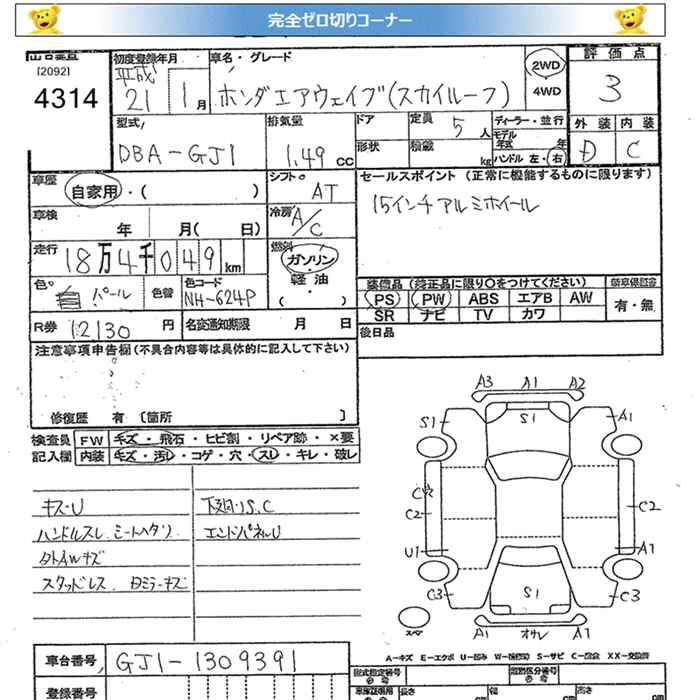 完全ゼロ切りコーナー
[2092]
4314
初度登録年月
平成
21 1月
車名・グレード
ホンダエアウェイブ(スカイルーフ)
2WD
4WD
評価点
3
型式
DBA-GJ1
排気量
1.49 CC
ドア
形状
定員 5人
積載 kg
ディーラー・並行
モデル年式 年
ハンドル 左・右
外装 内装
D C
車歴
自家用・( )
シフト
AT
セールスポイント (正常に機能するものに限ります)
15インチアルミホイール
車検
年 月( 日)
冷房
A/C
走行
18万4千049km
燃料
ガソリン・
軽油・
( )
色
パール
色替
色コード
NH-624P
装備品(純正品に限り○をつけてください)
新車保証書
PS PW ABS エアB AW
SR ナビ TV カワ
有・無
R券
12130円
名変通知期限 月 日
後日品
注意事項申告欄(不具合内容等は具体的に記入して下さい)
修復歴 有 〔箇所 〕
検査員
記入欄
FW キズ・飛石・ヒビ割・リペア跡・×要
内装 キズ・汚レ・コゲ・穴・スレ・キレ・破レ
キズ・U
下廻りS.C
ハンドルスレ シートヘタリ
エンドパネルU
外AWキズ
スタッドレス
A3 A1 A2
S1 S1 A1
C2
C2 C2
U1 A1
C3 S1 C3
スペア
A1 オサレ A1
A-キズ E-エクボ U-凹み W-補修跡 S-サビ C-腐食 XX-交換済
車台番号
GJ1-1309391
登録番号
型式指定番号
類別区分番号
長さ cm 幅 cm 高さ cm